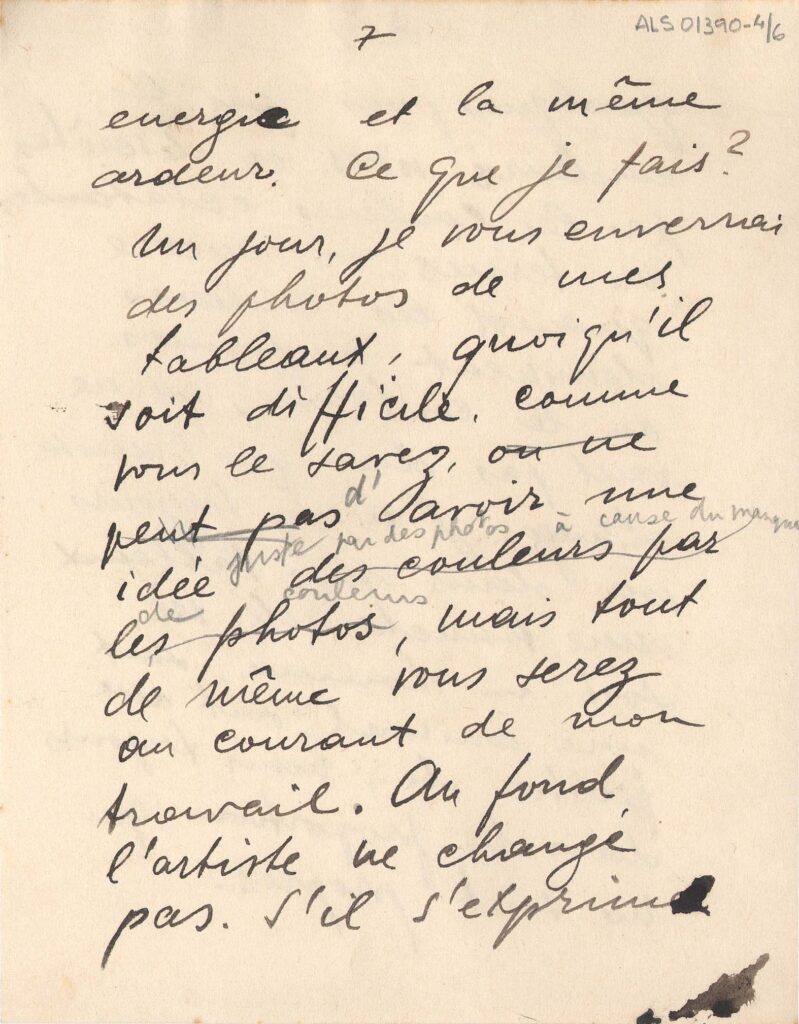 ALS 01390-4/6
7
energie et la même
ardeur. Ce que je fais?
Un jour, je vous enverrai
des photos de mes
tableaux, quoiqu'il
soit difficile, comme
vous le savez, on ne
peut pas d'avoir une
juste par des photos à cause du manque
idée des couleurs par
de couleurs
les photos, mais tout
de même vous serez
au courant de mon
travail. Au fond
l'artiste ne change
pas. S'il s'exprime